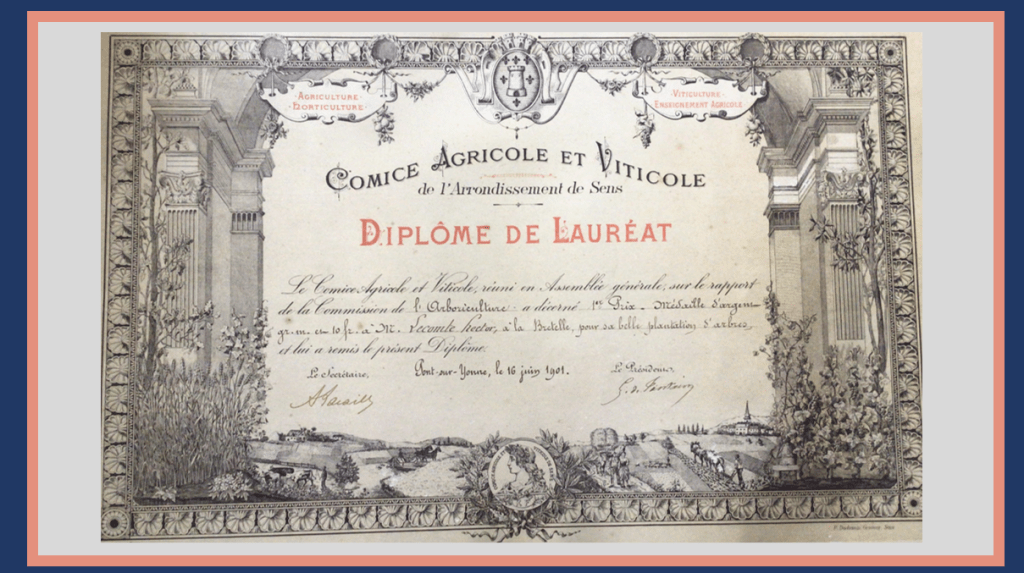 AGRICULTURE
HORTICULTURE
VITICULTURE
ENSEIGNEMENT AGRICOLE
COMICE AGRICOLE ET VITICOLE
de l'Arrondissement de Sens
DIPLÔME DE LAURÉAT
Le Comice Agricole et Viticole, réuni en Assemblée générale, sur le rapport
de la Commission de l'Arboriculture a décerné 1er Prix - Médaille d'argent
gr. m. et 10 fr. à M. Lecomte hector, à la Brutelle, pour sa belle plantation d'arbres,
et lui a remis le présent Diplôme.
Le Secrétaire, Pont-sur-Yonne, le 16 juin 1901. Le Président,